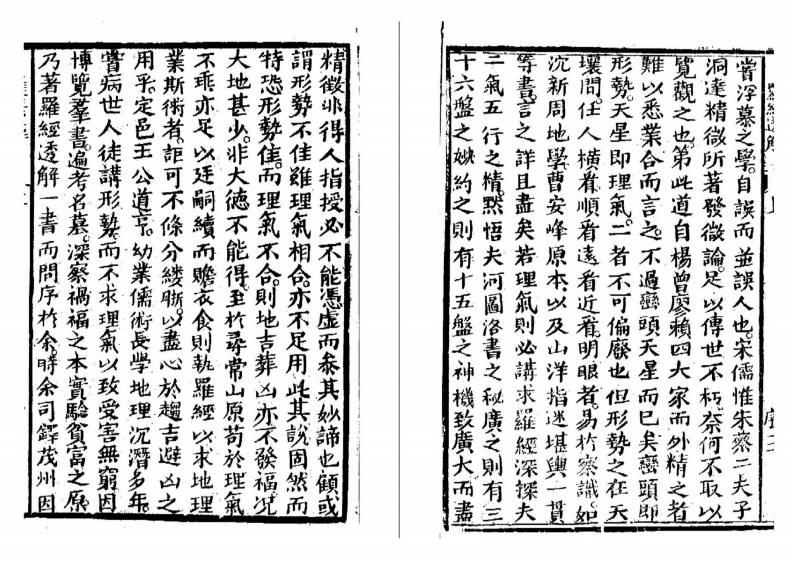 嘗浮慕之學。自誤而並誤人也。宋儒惟朱蔡二夫子
洞達精微。所著發微論。足以傳世不朽。奈何不取以
覽觀之也。第此道自楊曾廖賴四大家而外。精之者
難以悉業。合而言之。不過巒頭天星而已矣。巒頭即
形勢。天星即理氣。二者不可偏廢也。但形勢之在天
壤間。任人橫看順看遠看近看。明眼者。易於察識。如
沉新周地學。曹安峰原本。以及山洋指迷堪輿一貫
等書。言之詳且盡矣。若理氣則必講求羅經。深探夫
二氣五行之精。黙悟夫河圖洛書之秘。廣之則有三
十六盤之妙。約之則有十五盤之神機。致廣大而盡
精微。非得人指授。必不能憑虛而叅其妙諦也。顧或
謂形勢不佳。雖理氣相合。亦不足用。此其說固然。而
特恐形勢佳。而理氣不合。則地吉葬凶。亦不發福。况
大地甚少。非大德不能得。至於尋常山原。苟於理氣
不乖。亦足以廷嗣續而贍衣食。則執羅經以求地理
業斯術者。詎可不條分縷晰。以盡心於趨吉避凶之
用乎。定邑王公道亨。幼業儒術。長學地理。沉潛多年。
嘗病世人徒講形勢。而不求理氣。以致受害無窮。因
博覽羣書。遍考名墓。深察禍福之本。實驗貧富之原
乃著羅經透解一書。而問序於余。時余司鐸茂州。因